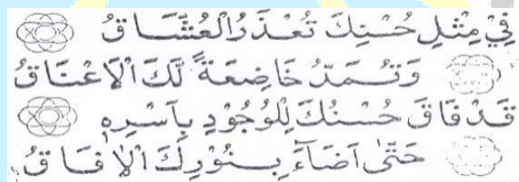 فِيْ مِثْلِ حُسْنِكَ تُعْذَرُ الْعُشَّاقُ
وَتُمَدُّ خَاضِعَةً لَكَ الْاَعْنَاقُ
قَدْ فَاقَ حُسْنُكَ لِلْوُجُوْدِ بِاَسْرِهٖ
حَتّٰى اَضَاءَ بِنُوْرِكَ الْاٰفَاقُ